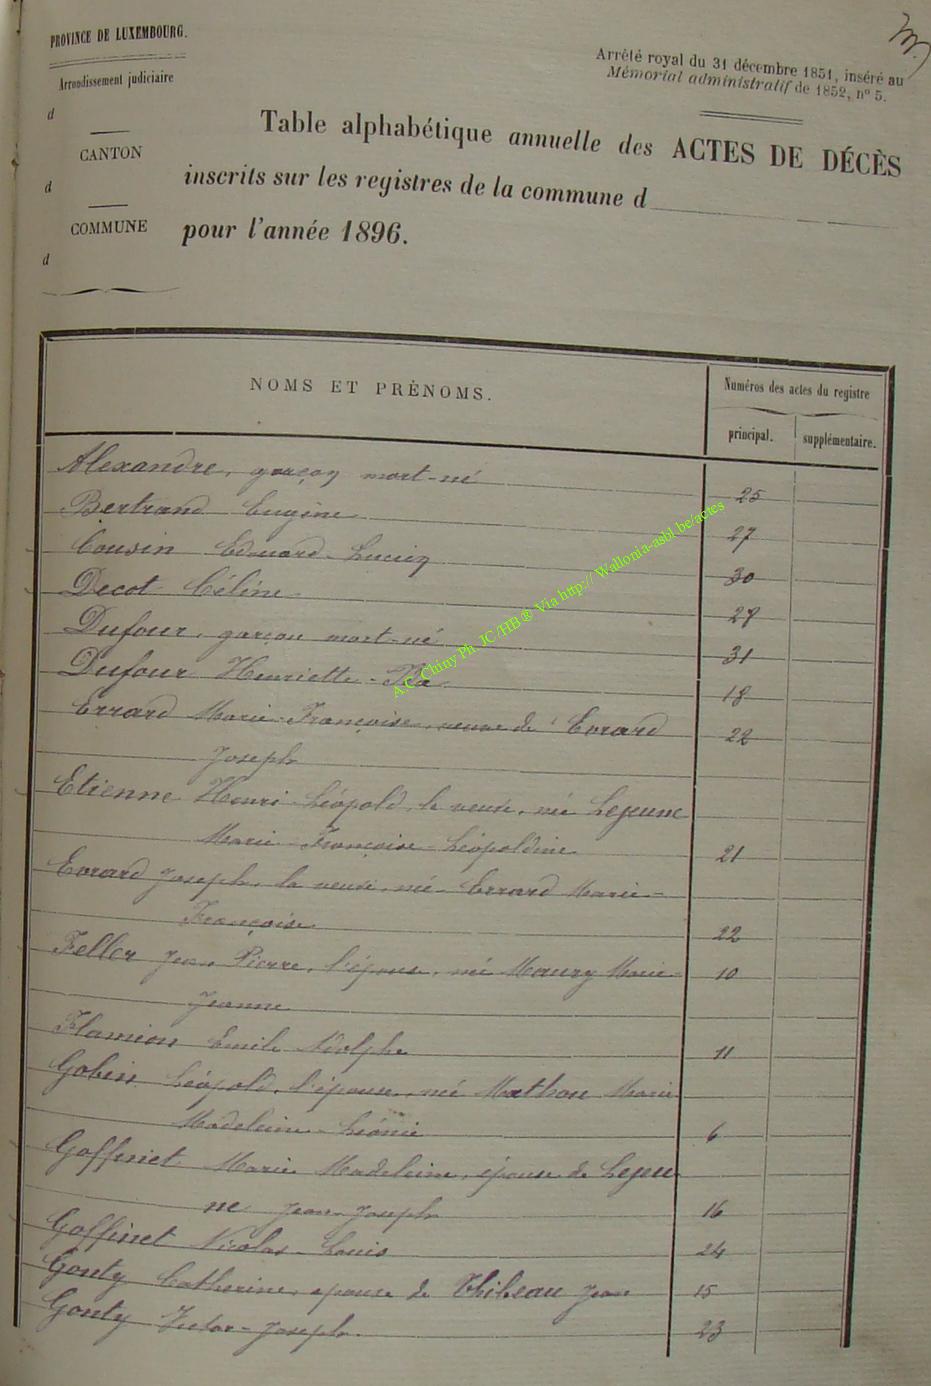 PROVINCE DE LUXEMBOURG.
Arrondissement judiciaire
d
CANTON
d
COMMUNE
d
Arrêté royal du 31 décembre 1851, inséré au
Mémorial administratif de 1852, nº 5.
Table alphabétique annuelle des ACTES DE DÉCÈS
inscrits sur les registres de la commune d
pour l'année 1896.
NOMS ET PRÉNOMS.
Numéros des actes du registre
principal. supplémentaire.
Alexandre, garçon mort-né 25
Bertrand Eugène 27
Cousin Edouard-Lucien 30
Decot Céline 28
Dufour, garçon mort-né 31
Dufour Henriette- 18
Errard Marie-Françoise, veuve de Evrard 22
Joseph
Etienne Henri-Léopold, la veuve, née Lejeune
Marie-Françoise-Léopoldine 21
Evrard Joseph, la veuve, née Errard Marie-
Françoise 22
Feller Jean Pierre, l'épouse, née Maury Marie- 10
Jeanne
Flamion Emile Adolphe 11
Gobin Léopold, l'épouse, née Mathou Marie
Madeleine-Léonie 6
Goffinet Marie Madeleine, épouse de Lejeu-
ne Jean-Joseph 16
Goffinet Nicolas-Louis 24
Gouty Catherine, épouse de Thibeau Jean 15
Gouty Victor-Joseph 23
A.C. Chiny Ph. JC/HB ® Via http:// Wallonia-asbl be/actes